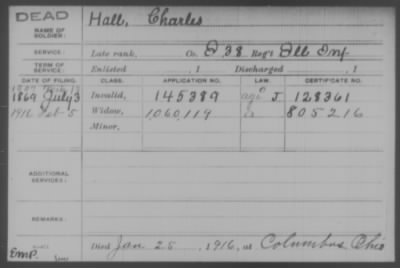 DEAD
NAME OF SOLDIER: Hall, Charles
SERVICE: Late rank, Co. D 38 Reg't Ill Inf
TERM OF SERVICE: Enlisted , 1 Discharged , 1
DATE OF FILING. CLASS. APPLICATION NO. LAW. CERTIFICATE NO.
1869 July 3 Invalid, 145389 J 128361
1916 Feb 5 Widow, 1,060,119 805216
Minor,
ADDITIONAL SERVICES:
REMARKS:
Died Jan 25, 1916, at Columbus Ohio
Emp.